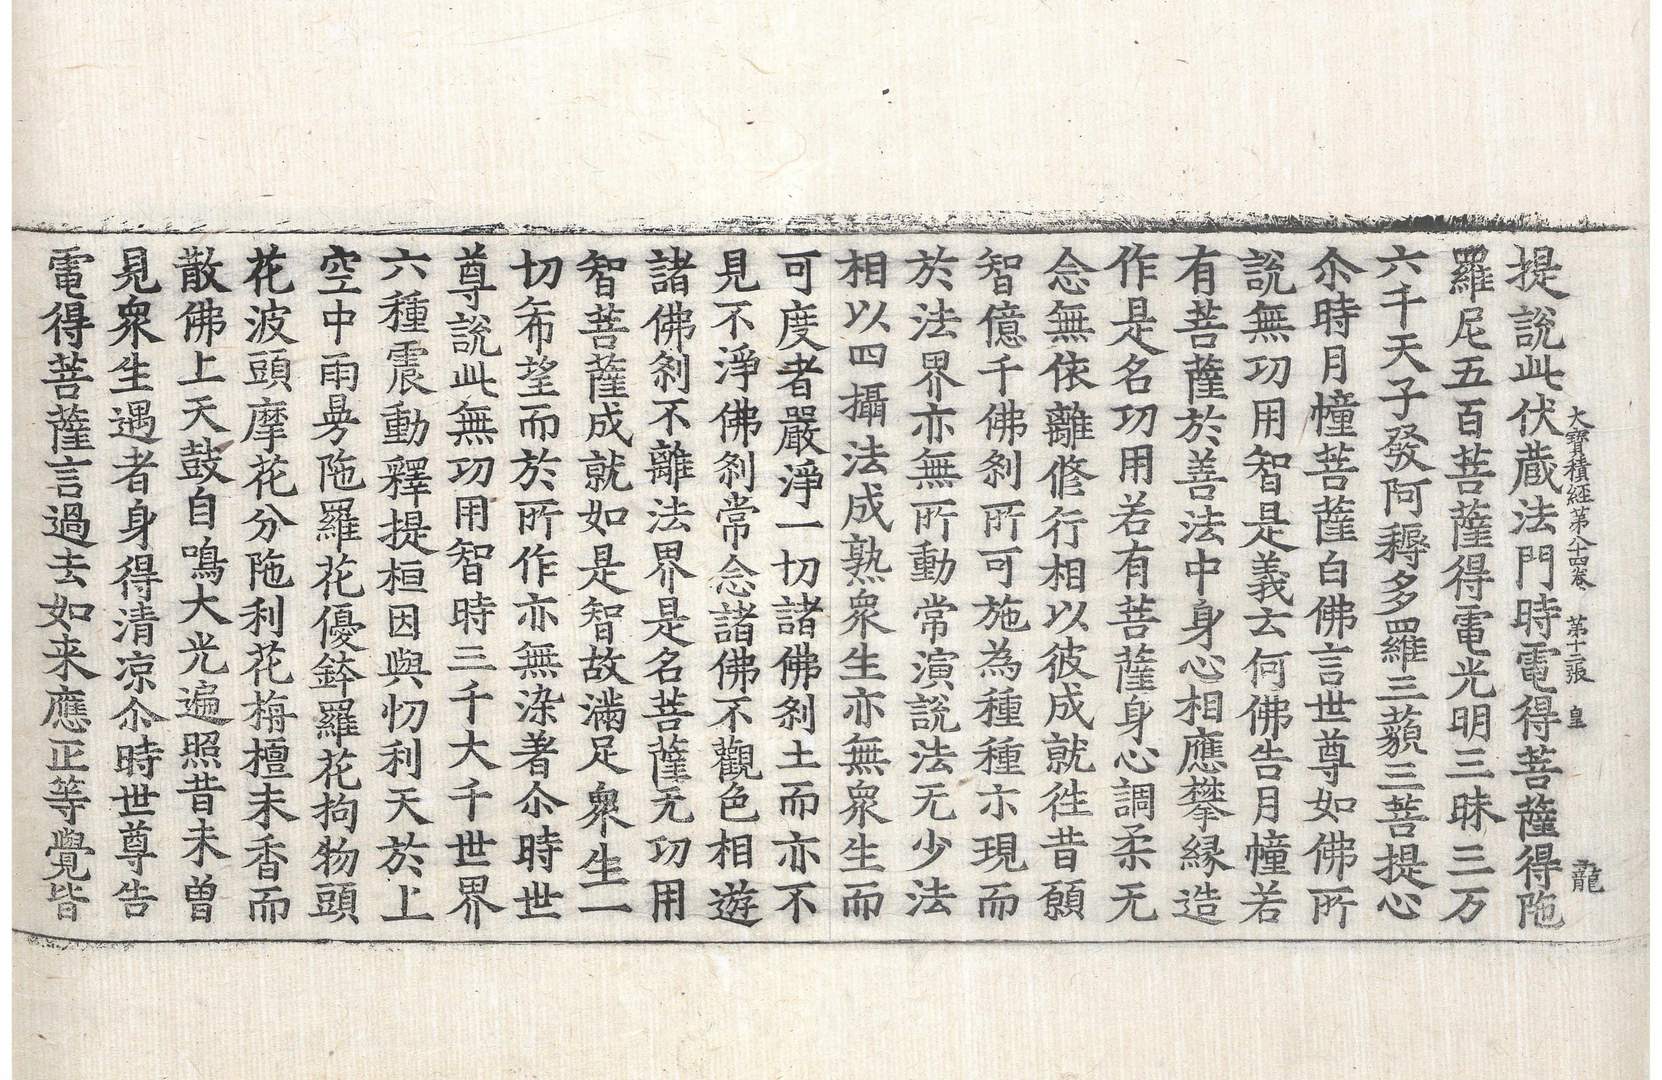 大寶積經第八十四卷 第十三張 皇
龍
提說此伏藏法門時電得菩薩得陁
羅尼五百菩薩得電光明三昧三万
六千天子發阿耨多羅三藐三菩提心
尒時月幢菩薩白佛言世尊如佛所
說無功用智是義云何佛告月幢若
有菩薩於善法中身心相應攀緣造
作是名功用若有菩薩身心調柔无
念無依離修行相以彼成就往昔願
智億千佛剎所可施為種種示現而
於法界亦無所動常演說法无少法
相以四攝法成熟衆生亦無衆生而
可度者嚴淨一切諸佛剎土而亦不
見不淨佛剎常念諸佛不觀色相遊
諸佛剎不離法界是名菩薩无功用
智菩薩成就如是智故滿足衆生一
切希望而於所作亦無染著尒時世
尊說此無功用智時三千大千世界
六種震動釋提桓因與忉利天於上
空中雨曼陁羅花優鉢羅花拘物頭
花波頭摩花分陁利花栴檀末香而
散佛上天鼓自鳴大光遍照昔未曾
見衆生遇者身得清凉尒時世尊告
電得菩薩言過去如来應正等覺皆